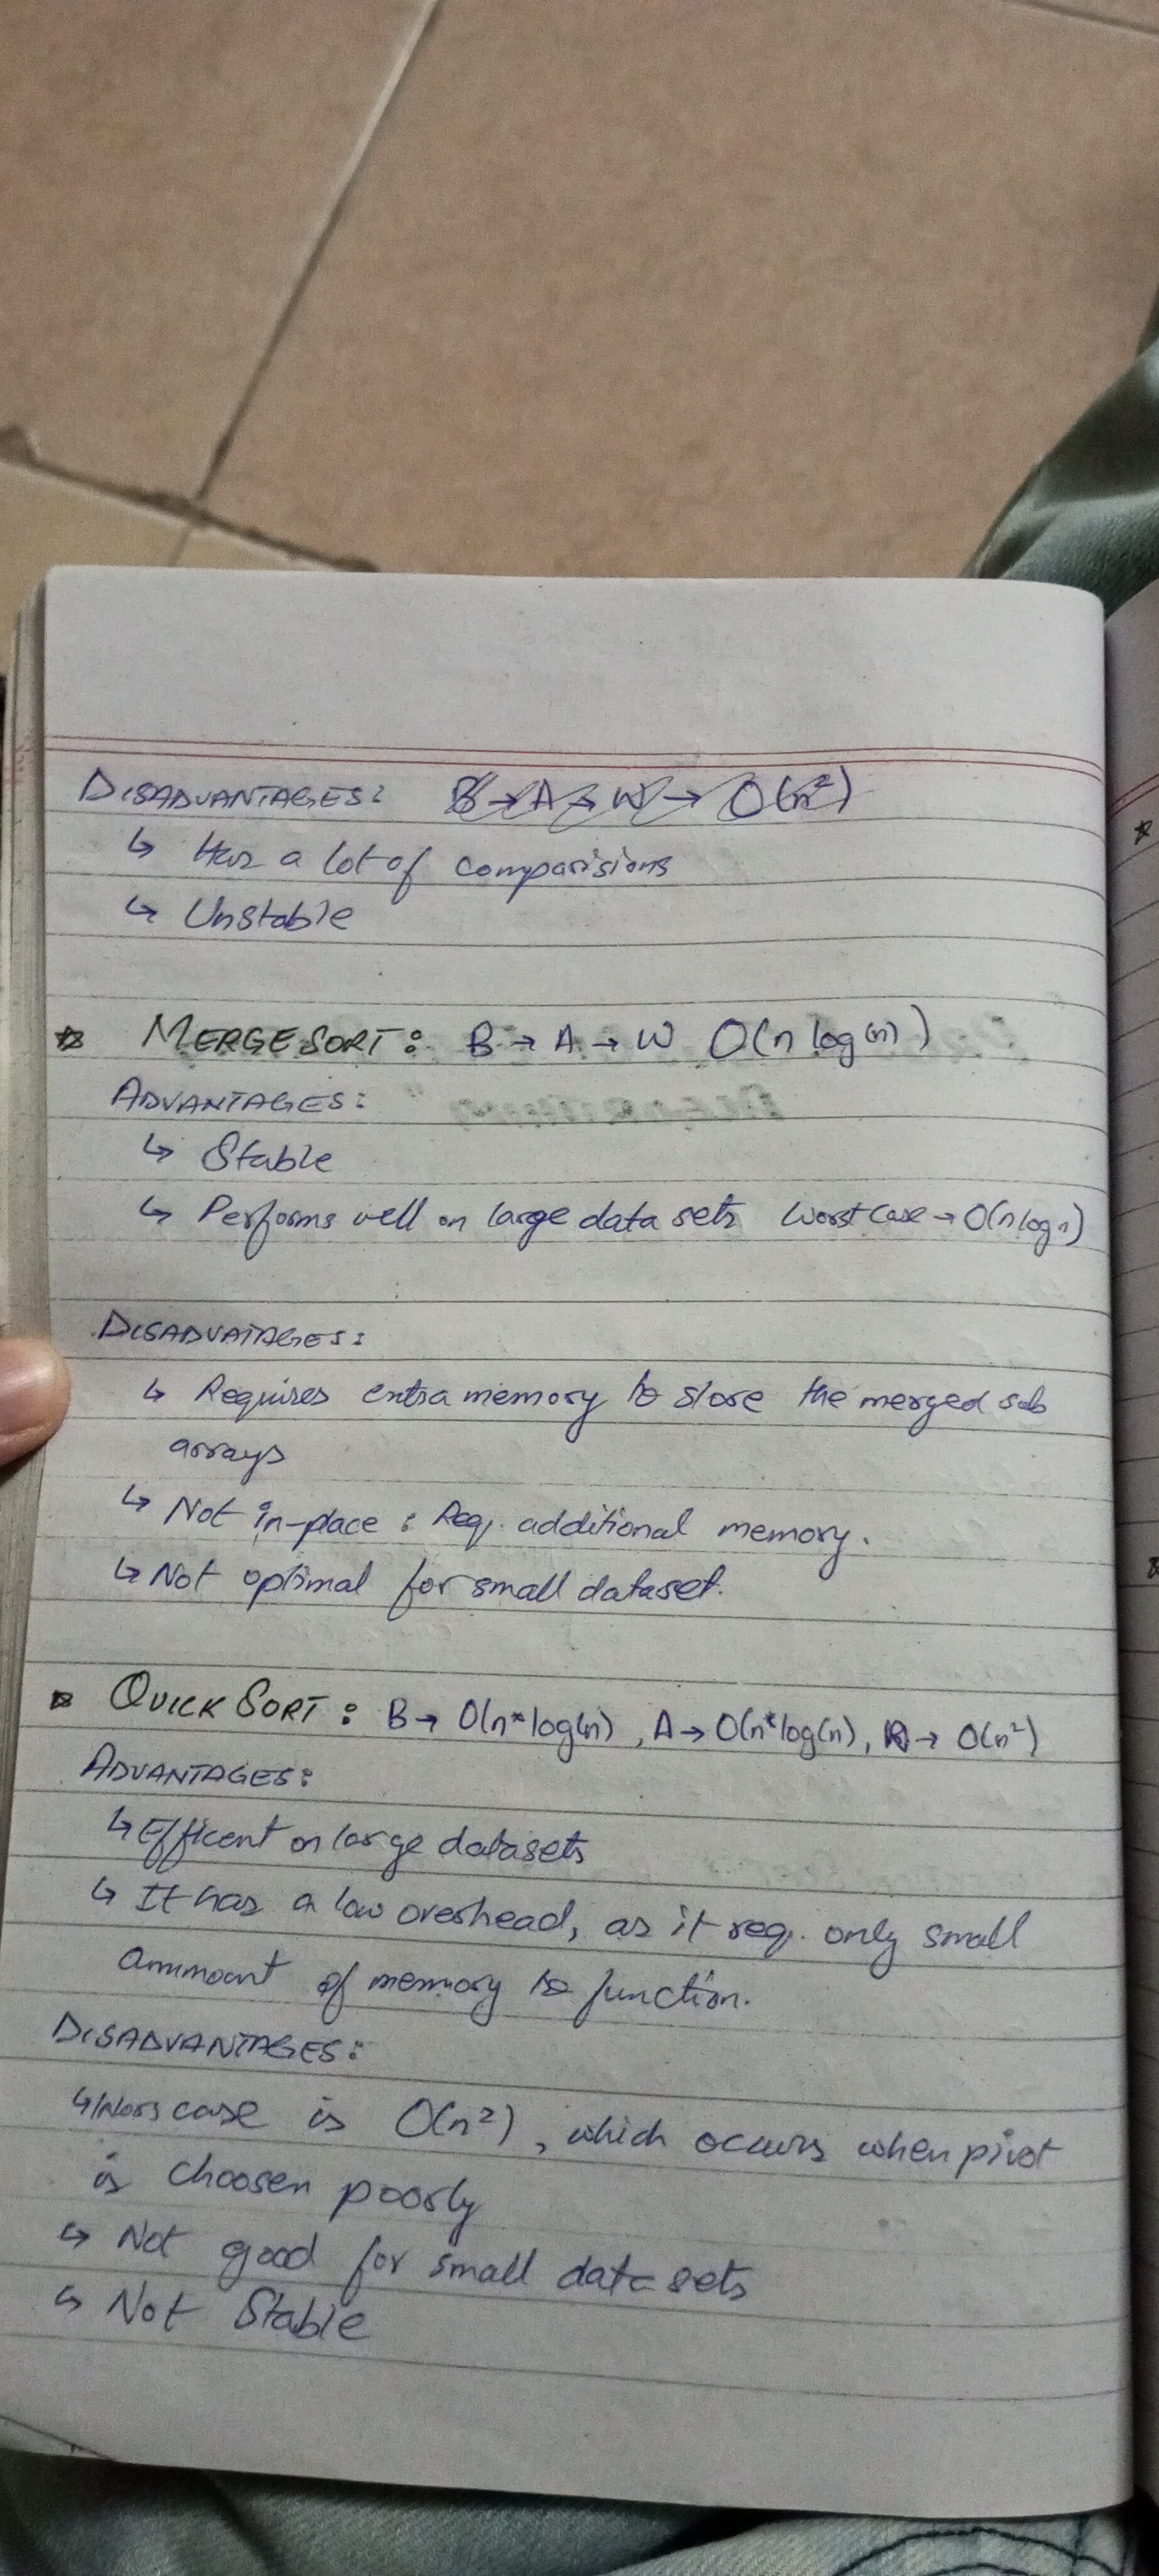 DISADVANTAGES: B → A → W → O(n²)
↳ Has a lot of comparisions
↳ Unstable
☆ MERGE SORT: B → A → W O(n log(n))
ADVANTAGES:
↳ Stable
↳ Performs well on large data sets Worst case → O(n log n)
DISADVATAGES:
↳ Requires extra memory to store the merged sub
arrays
↳ Not in-place : Req. additional memory.
↳ Not optimal for small dataset.
☆ QUICK SORT: B → O(n*log(n)), A → O(n*log(n)), → O(n²)
ADVANTAGES:
↳ Efficent on large datasets
↳ It has a low overhead, as it req. only small
ammount of memory to function.
DISADVANTAGES:
↳ Wors case is O(n²), which occurs when pivot
is choosen poorly
↳ Not good for small data sets
↳ Not Stable